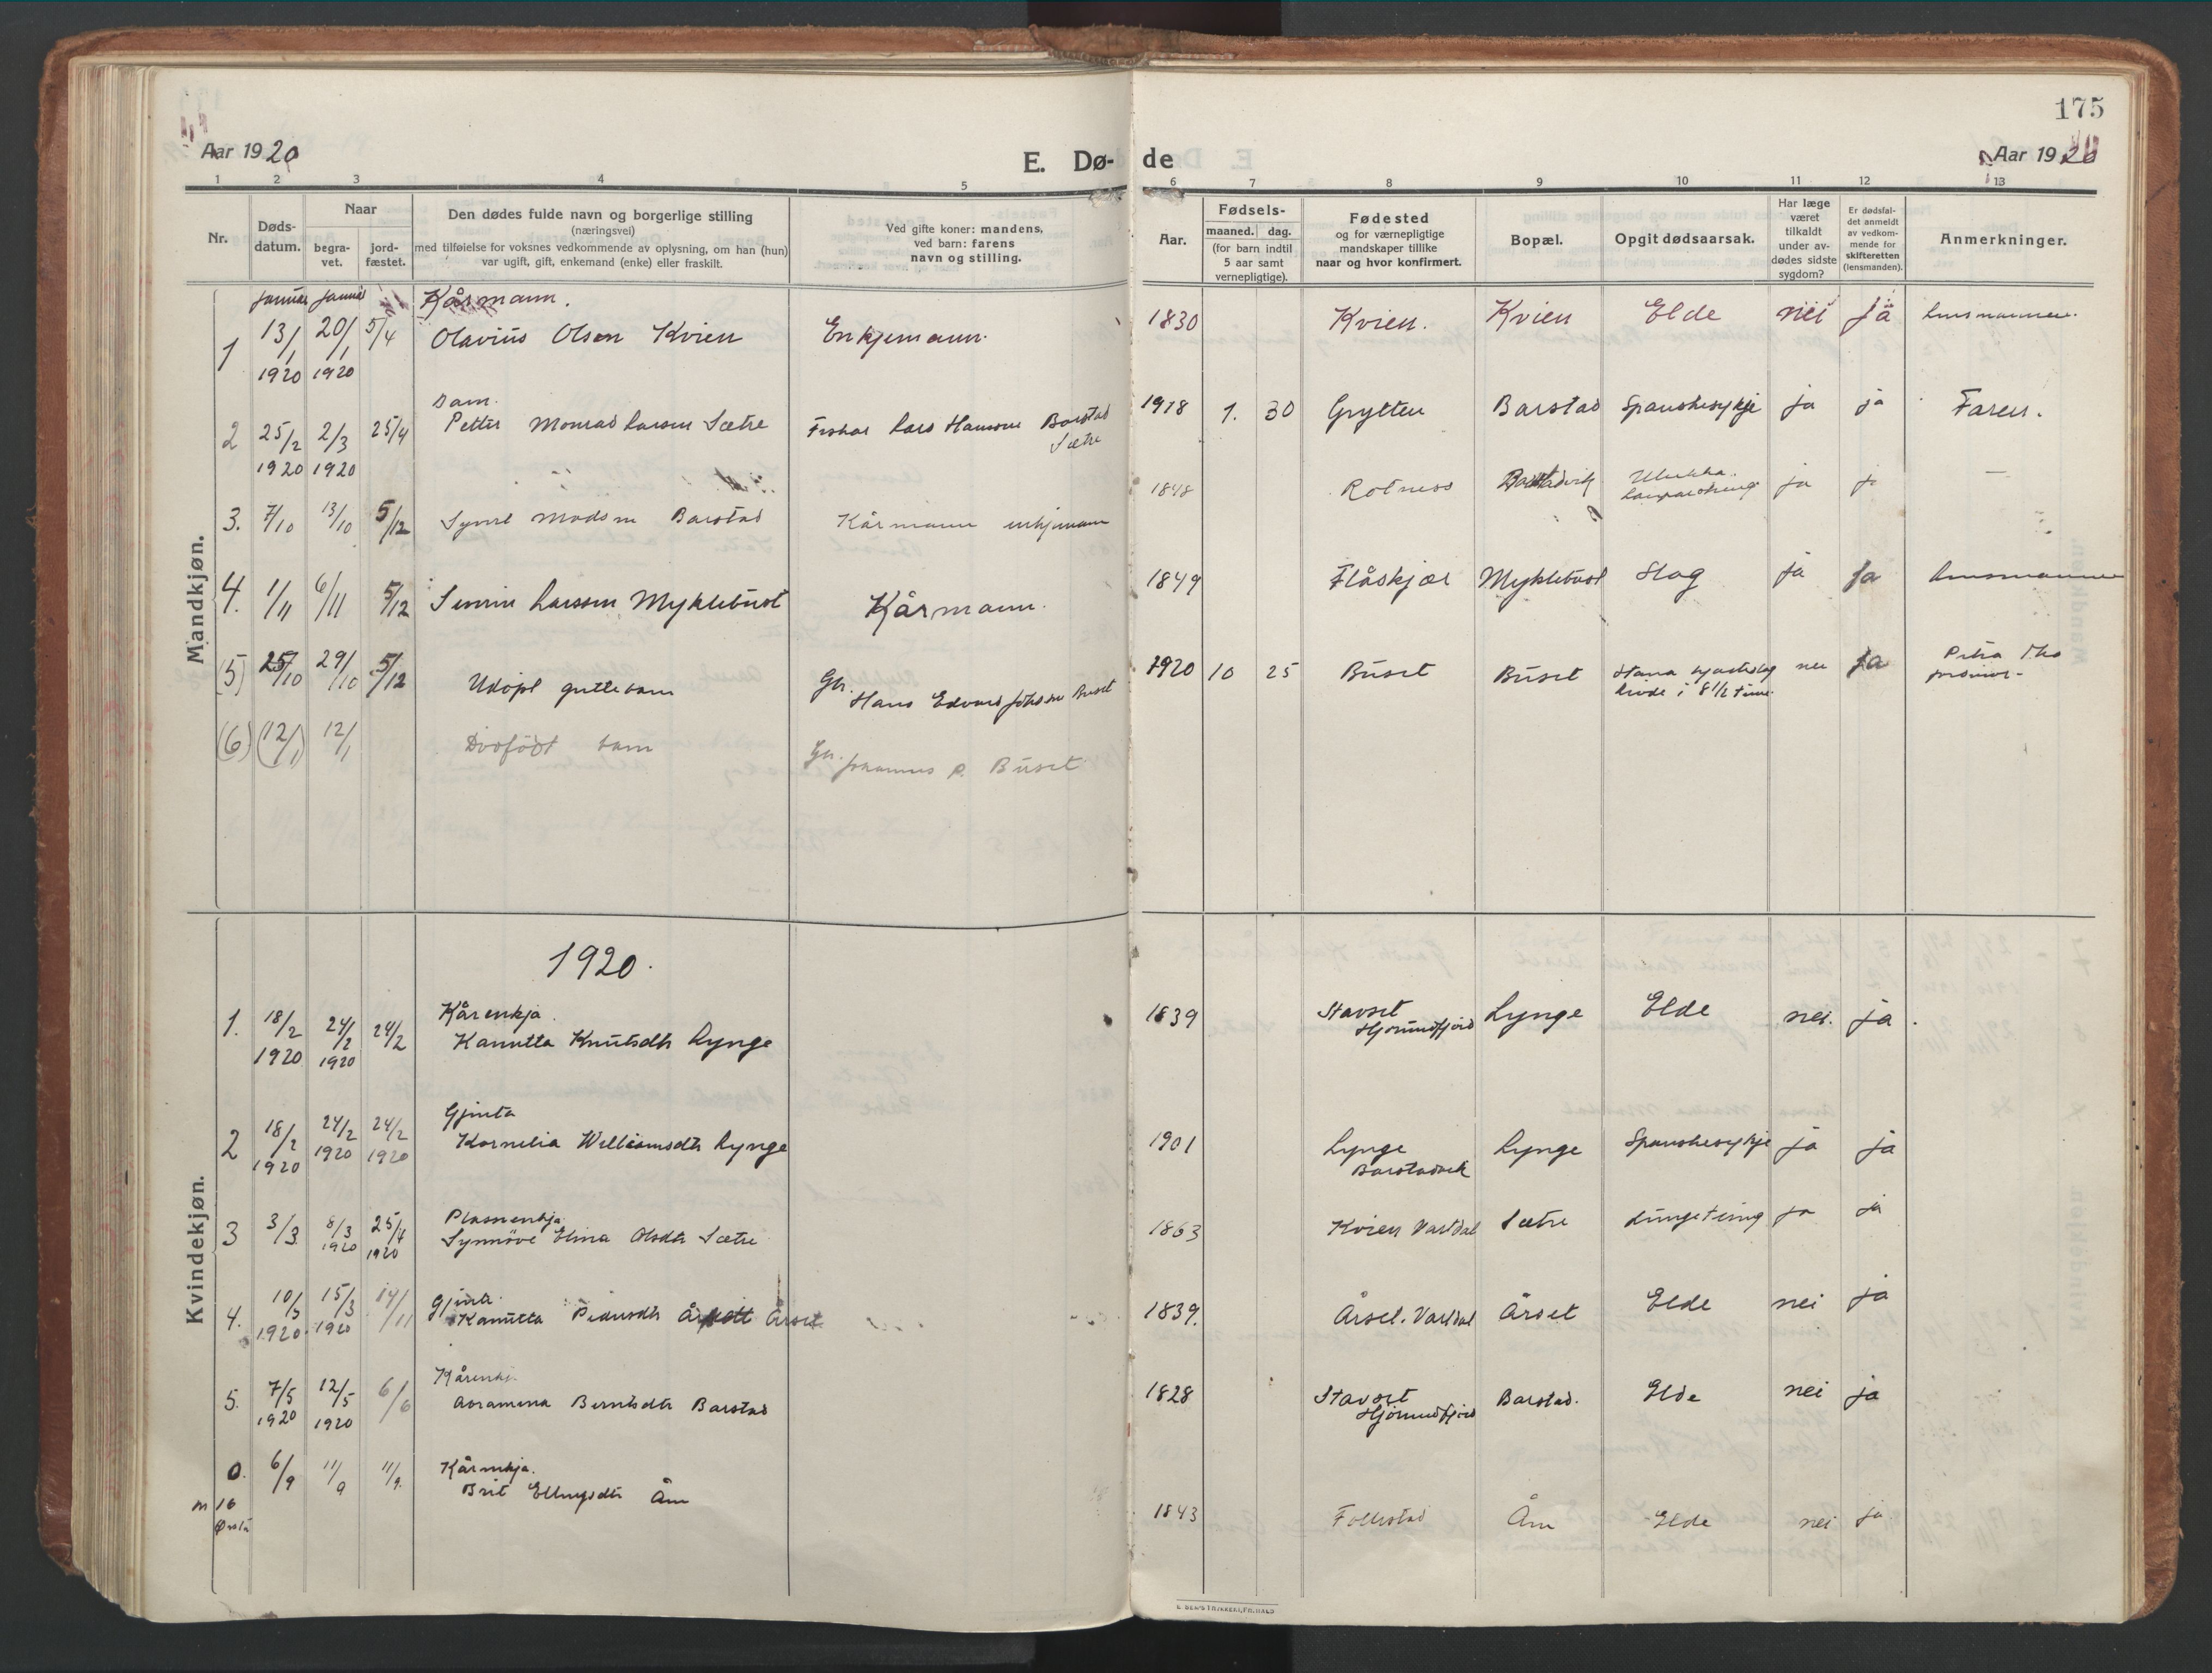 175
Aar 1920
E. Dø-
de
Aar 1920
1 2 3 4 5 6 7 8 9 10 11 12 13
Nr.
Døds-
datum.
Naar
begra-
vet.
jord-
fæstet.
Den dødes fulde navn og borgerlige stilling
(næringsvei)
med tilføielse for voksnes vedkommende av oplysning, om han (hun)
var ugift, gift, enkemand (enke) eller fraskilt.
Ved gifte koner: mandens,
ved barn: farens
navn og stilling.
Aar.
Fødsels-
maaned. dag.
(for barn indtil
5 aar samt
vernepligtige).
Fødested
og for værnepligtige
mandskaper tillike
naar og hvor konfirmert.
Bopæl.
Opgit dødsaarsak.
Har læge
været
tilkaldt
under av-
dødes sidste
sygdom?
Er dødsfal-
det anmeldt
av vedkom-
mende for
skifteretten
(lensmanden).
Anmerkninger.
Mandkjøn.
januar januar Kårmann.
1 13/1 20/1 5/4 Olavius Olsen Kvien Enkjemann. 1830 Kvien. Kvien Elde nei ja
1920 1920
Barn.
2 25/2 2/3 25/4 Petter Monrad Larsen Sætre Fiskar Lars Hansen Barstad 1918 1. 30 Grytten Barstad Spanskesykje ja ja Faren.
Sætre
1920 1920
3. 7/10 13/10 5/12 Madsen Barstad Kårmann enkjemann 1848 Rotness Barstadvik ja
4. 1/11 6/11 5/12 Larssen Myklebust Kårmann. 1849 Flåskjær Myklebust Slag ja ja
(5) 25/10 29/10 5/12 Udøpt guttebarn Gb. Hans Edvard Buset 1920 10 25 Buset Buset nei ja Petra
levde i 8 1/2 time
(6) (12/1) 12/1 Dødfødt barn Gb. P. Buset
Kvindekjøn.
1920.
Kårenkja.
1. 18/2 24/2 24/2 Kanutta Knutsdtr Lynge 1839 Stavset Lynge Elde nei. ja.
Hjørundfjord
1920 1920
Gjenta
2 18/2 24/2 24/2 Kornelia Williamsdtr Lynge 1901 Lynge Lynge Spanskesykje ja ja
Barstadvik
1920 1920 1920
Plassenkja
3 3/3 8/3 25/4 Synnöve Elina Olsdtr Sætre 1863 Kvien Vartdal Sætre Lungetæring ja ja
1920 1920
Gjenta.
4. 10/3 15/3 14/11 Kanutta Pedersdtr Årset 1839. Årset. Vartdal Årset Elde nei ja
1920. 1920
Kårenkj.
5. 7/5 12/5 6/6 Abramina Berntsdtr Barstad 1828 Stavset Barstad. Elde nei ja
Hjørundfjord
1920 1920
Kårenkja.
0. 6/9 11/9 11/9. Brit Ellingsdtr Åm 1843 Follestad Åm Elde nei ja
16
Ørsta